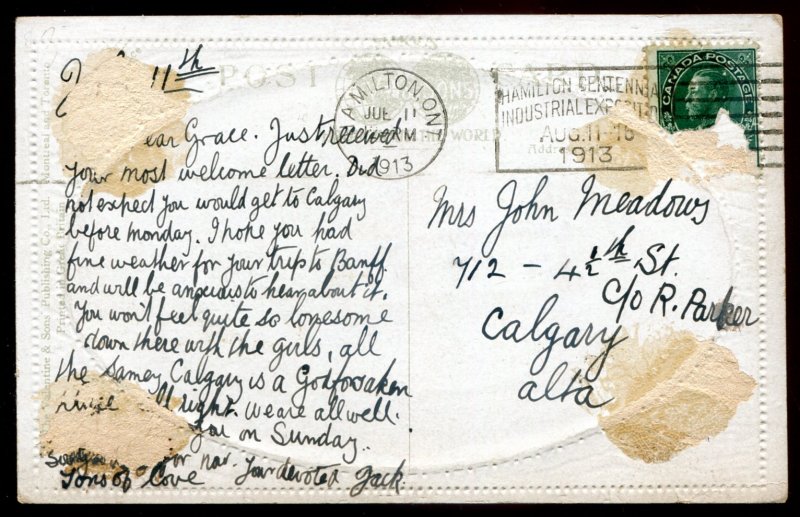 11th
POST
HAMILTON, ONT.
JUL 11
M
1913
HAMILTON CENTENNIA
INDUSTRIAL EXPOSITIO
AUG. 11-16
1913
CANADA POSTAGE
WORLD
Valentine & Sons Publishing Co., Ltd. Montreal and Toronto
Printed in Great Britain
ear Grace. Just received
your most welcome letter. Did
not expect you would get to Calgary
before Monday. I hope you had
fine weather for your trip to Banff
and will be anxious to hear about it.
You won't feel quite so lonesome
down there with the girls, all
the same, Calgary is a Godforsaken
all right. We are all well.
you on Sunday.
for now. Your devoted Jack.
Tons of Love
Mrs John Meadows
712 - 4½th St.
c/o R. Parker
Calgary
Alta